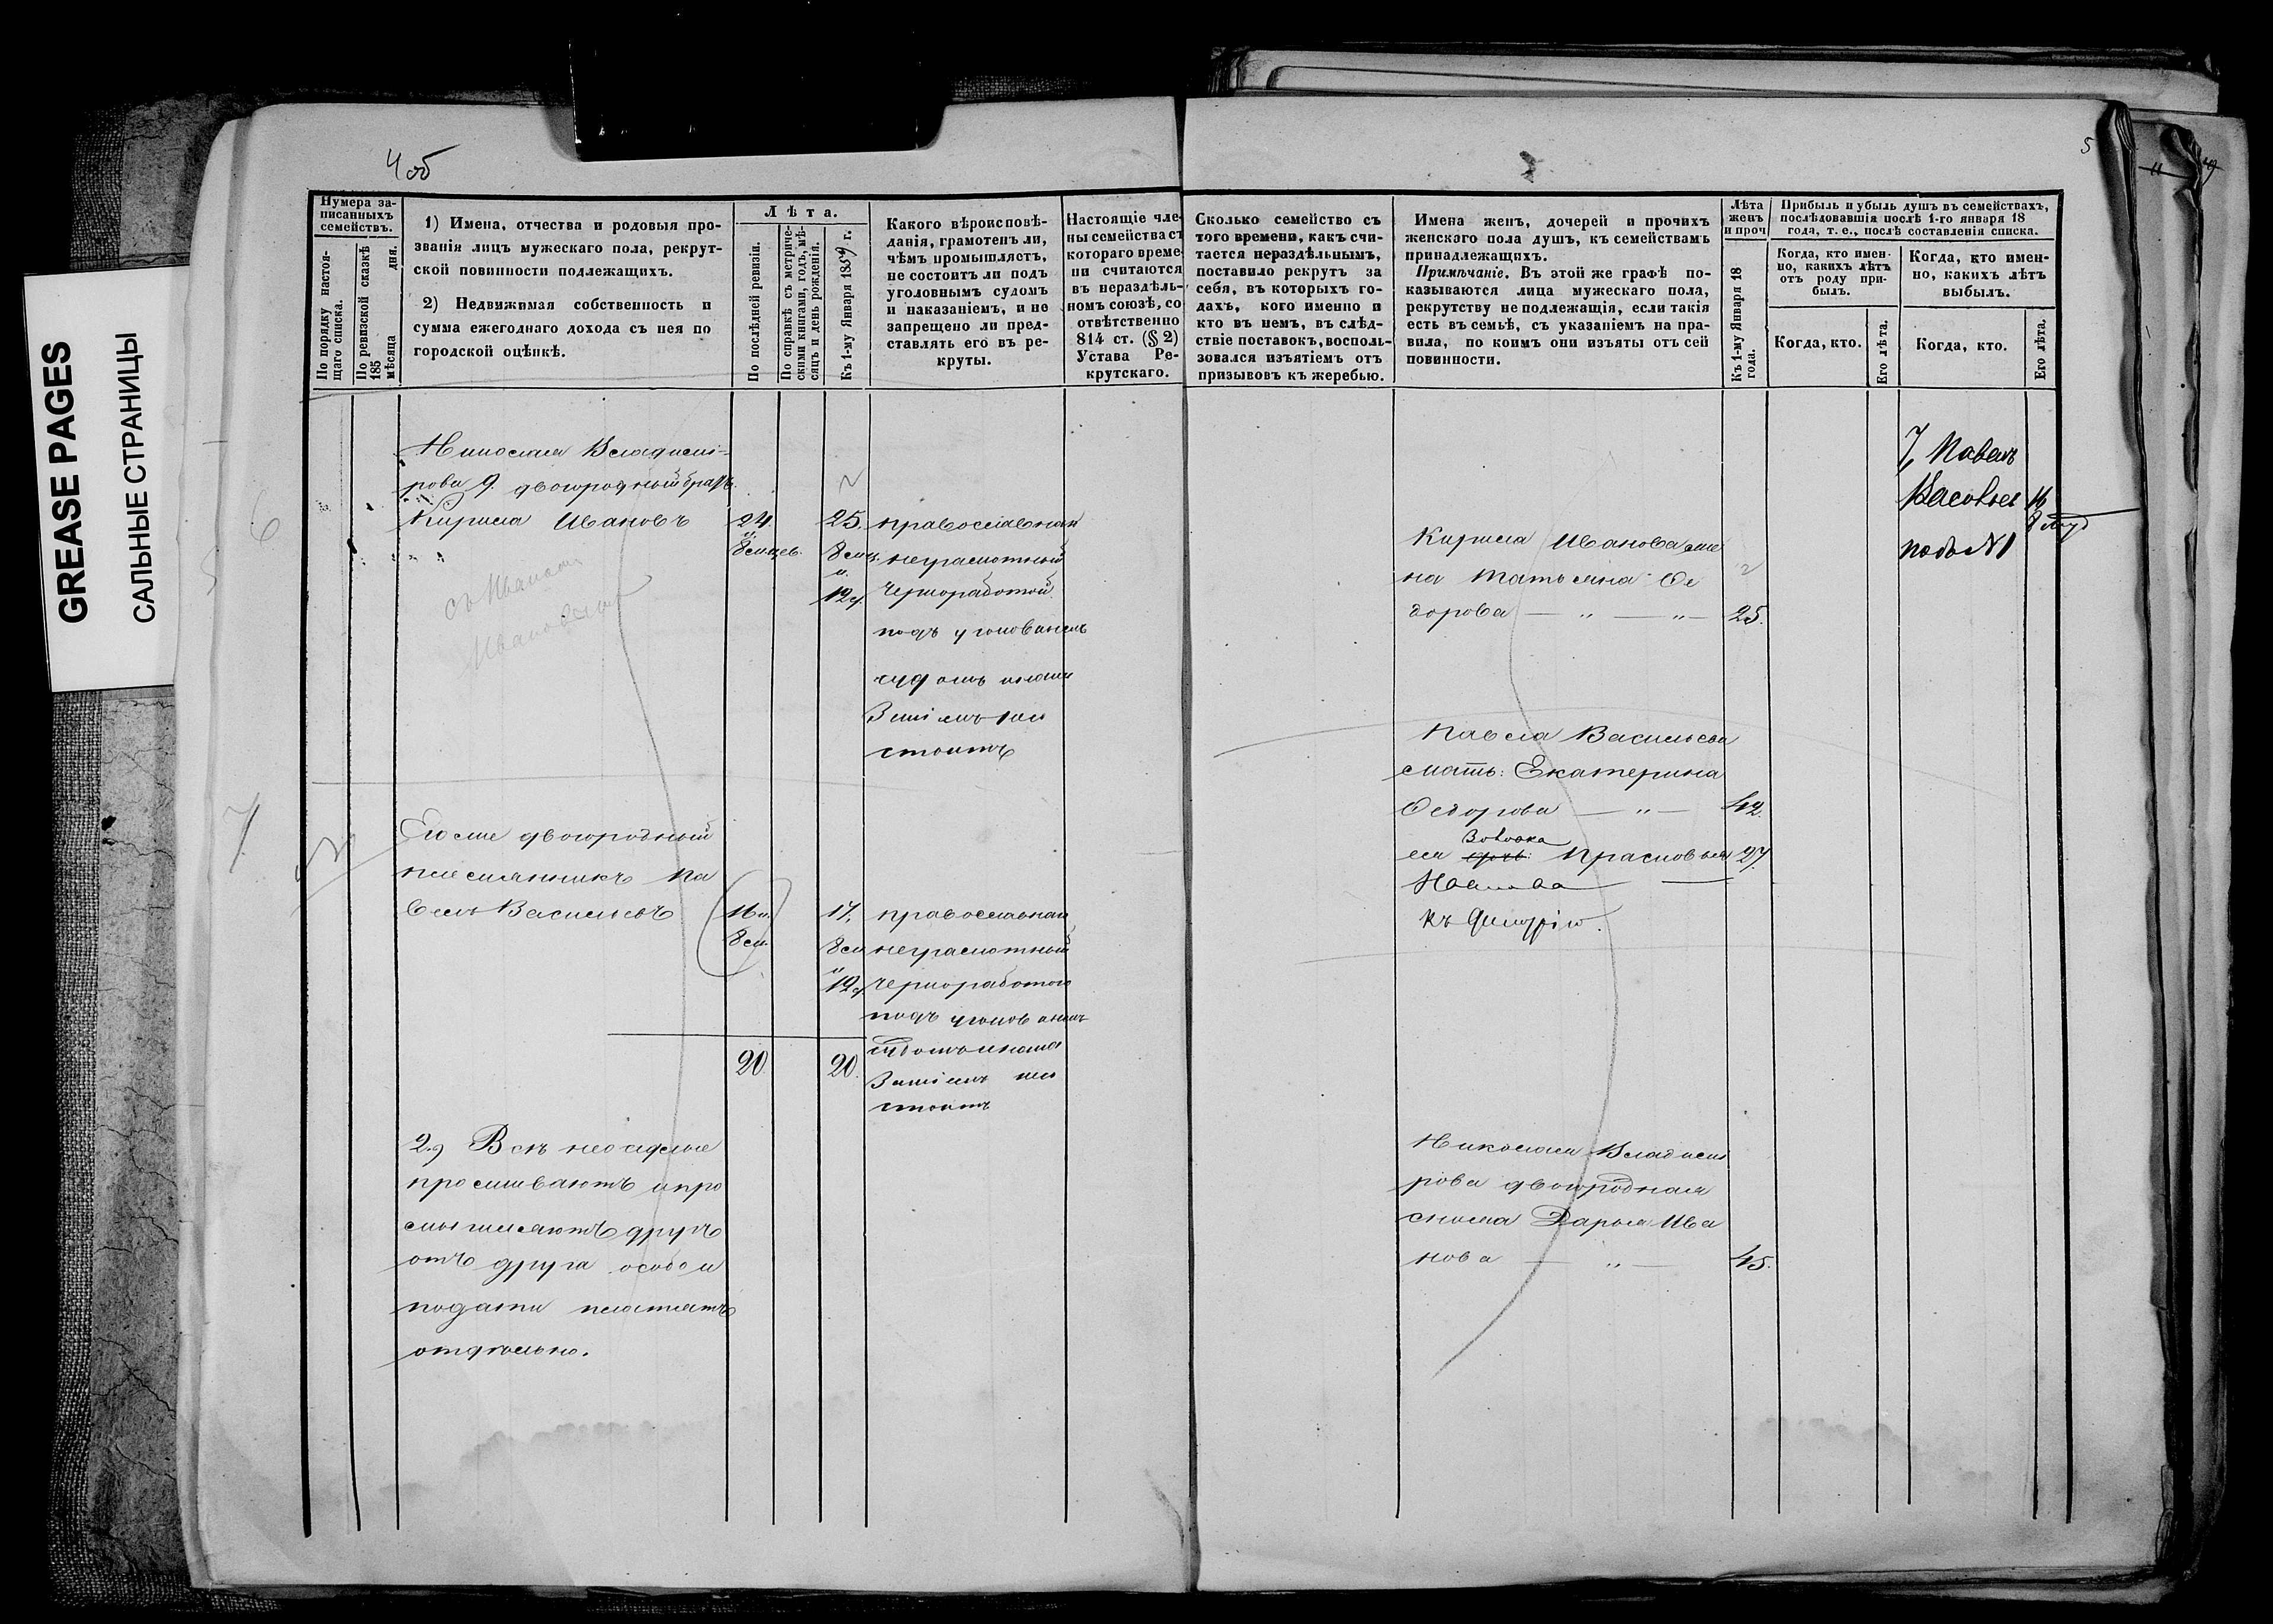 GREASE PAGES
САЛЬНЫЕ СТРАНИЦЫ
4 об
5
Нумера за-
писанныхъ
семействъ.
По порядку настоя-
щаго списка.
По ревизской сказкѣ
185 дня.
мѣсяца
1) Имена, отчества и родовыя про-
званія лицъ мужескаго пола, рекрут-
ской повинности подлежащихъ.
2) Недвижимая собственность и
сумма ежегоднаго дохода съ нея по
городской оцѣнкѣ.
Лѣта.
По послѣдней ревизіи.
По справкѣ съ метриче-
скими книгами, годъ, мѣ-
сяцъ и день рожденія.
Къ 1-му Января 1859 г.
Какого вѣроисповѣ-
данія, грамотенъ ли,
чѣмъ промышляетъ,
не состоитъ ли подъ
уголовнымъ судомъ
и наказаніемъ, и не
запрещено ли пред-
ставлять его въ ре-
круты.
Настоящіе чле-
ны семейства съ
котораго време-
ни считаются
въ нераздѣль-
номъ союзѣ, со-
отвѣтственно
814 ст. (§ 2)
Устава Ре-
крутскаго.
Сколько семейство съ
того времени, какъ счи-
тается нераздѣльнымъ,
поставило рекрутъ за
себя, въ которыхъ го-
дахъ, кого именно и
кто въ немъ, въ слѣд-
ствіе поставокъ, восполь-
зовался изъятіемъ отъ
призывовъ къ жеребью.
Имена женъ, дочерей и прочихъ
женскаго пола душъ, къ семействамъ
принадлежащихъ.
Примѣчаніе. Въ этой же графѣ по-
казываются лица мужескаго пола,
рекрутству не подлежащія, если такія
есть въ семьѣ, съ указаніемъ на пра-
вила, по коимъ они изъяты отъ сей
повинности.
Лѣта
женъ
и проч
Къ 1-му Января 18
года.
Прибыль и убыль душъ въ семействахъ,
послѣдовавшія послѣ 1-го января 18
года, т. е., послѣ составленія списка.
Когда, кто имен-
но, какихъ лѣтъ
отъ роду при-
былъ.
Когда, кто имен-
но, какихъ лѣтъ
выбылъ.
Когда, кто.
Его лѣта.
Когда, кто.
Его лѣта.
6
Николая Владимі-
рова 9. двоюродный братъ
Кирила Ивановъ
24.
8 месцев.
25.
8 мц.
и
12 д.
православнай
неграмотный
Чернаработой.
подъ уголовнымъ
судомъ инака
Заніемъ не
стоитъ
Кирила Иванова же
на Татьяна Ѳе
дорова — " — " —
25.
7, Павелъ
Васильев
подъ №1
16
съ Иваномъ
Ивановымъ
7
Его же двоюродный
племянникъ Па
велъ Васильевъ
16 и
8 м.
17.
8 м
и
12 д.
православнай
неграмотный
чернаработой
подъ уголовнымъ
судомъ инака
Заніемъ не
стоитъ
20.
20.
Павла Васильева
мать: Екатерина
Ѳедорова — " —
42.
Золовка
ея Прасковья
27.
2, Всѣ неседлые
проживаютъ и про
мышляютъ другъ
отъ друга особо и
подати платятъ
отдѣльно.
Николая Владими
рова двоюродная
сноха Дарья Ива
нова — " —
45.